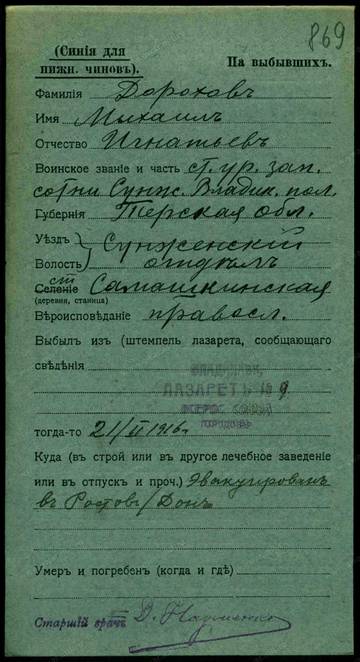 869
(Синія для
нижн. чиновъ).
На выбывшихъ.
Фамилія Дороховъ
Имя Михаилъ
Отчество Игнатьевъ
Воинское званіе и часть ст. ур. зап.
сотни Сунж. Владик. пол.
Губернія Терская обл.
Уѣздъ Сунженскій
Волость отдѣлъ
Селеніе ст Самашкинская
(деревня, станица)
Вѣроисповѣданіе правосл.
Выбылъ из (штемпель лазарета, сообщающаго
свѣдѣнія
ЛАЗАРЕТЪ № 9
тогда-то 21/II 1916 г.
Куда (въ строй или въ другое лечебное заведеніе
или въ отпускъ и проч.) Эвакуированъ
въ Ростовъ/Донъ
Умеръ и погребен (когда и гдѣ)
Старшій врачъ